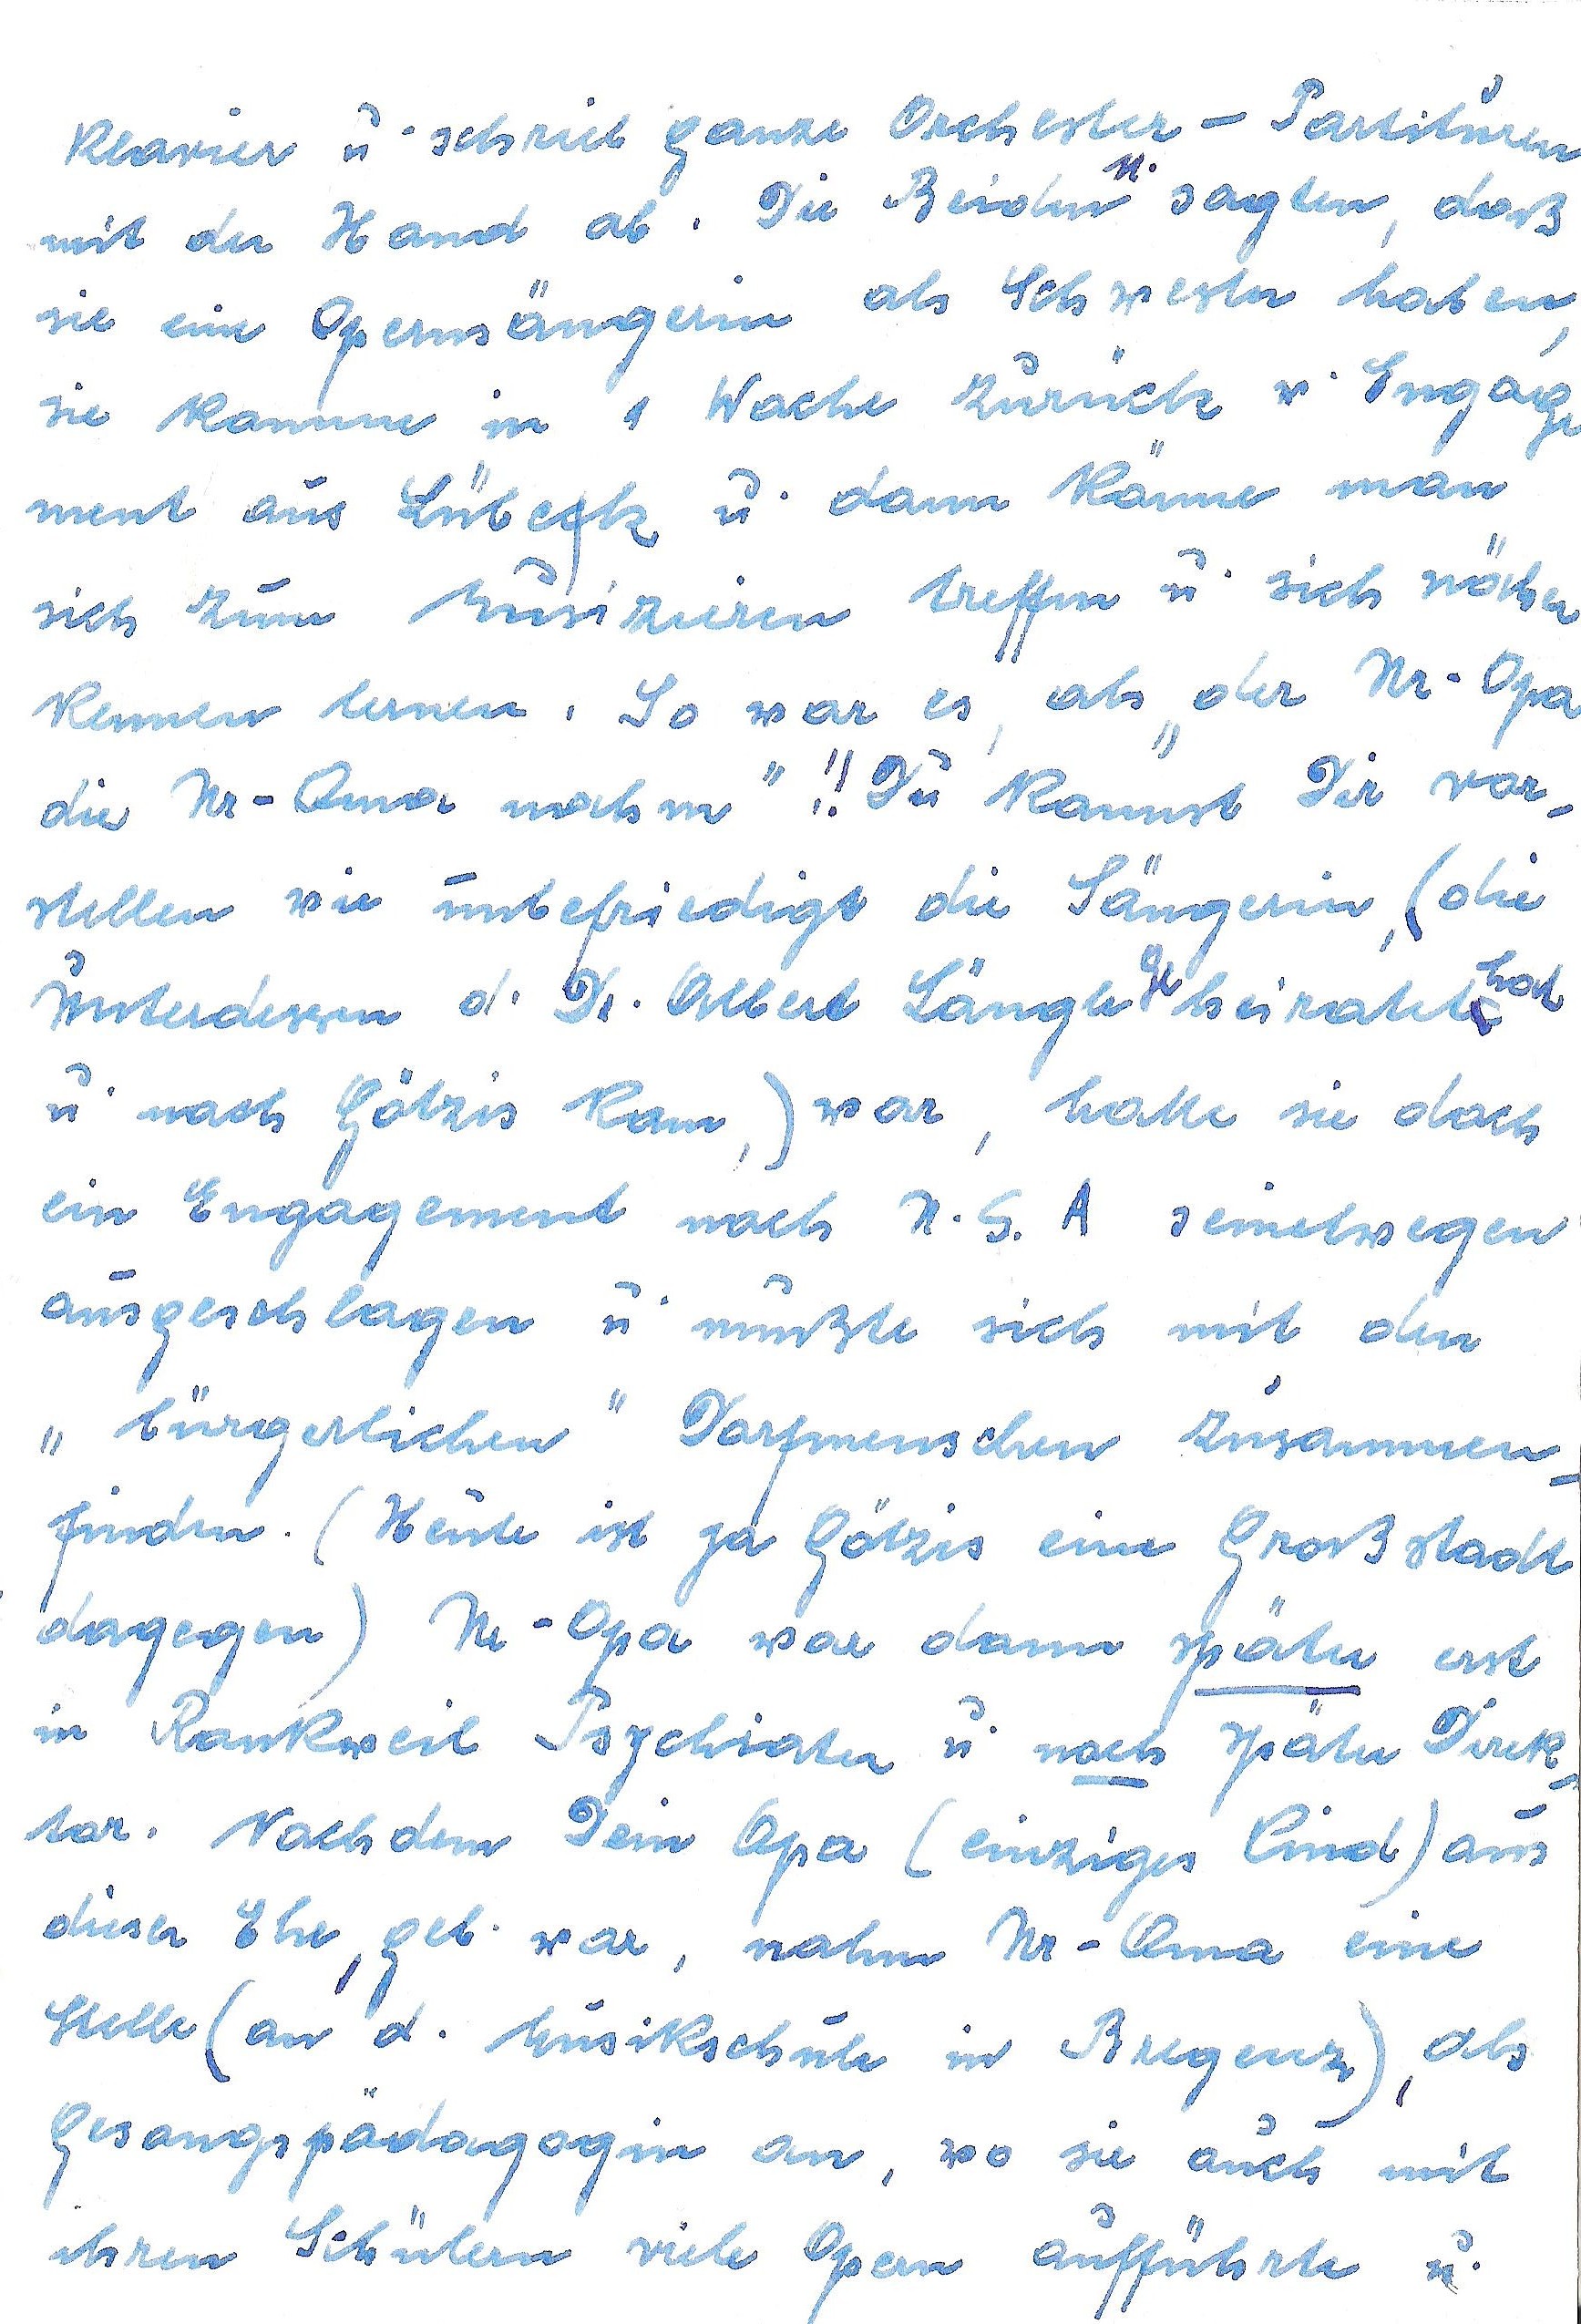 Klavier u. schrieb ganze Orchester - Partituren
mit der Hand ab. Die Beiden sagten, daß
sie eine Opernsängerin als Schwester haben,
sie komme in 1 Woche zurück v. Engage
ment aus Lübeck u. dann könne man
sich zum Musizieren treffen u. sich näher
kennen lernen. So war es, als „der Ur-Opa
die Ur-Oma nahm"!! Du kannst Dir vor-
stellen wie unbefriedigt die Sängerin, (die
unterdessen d. Dr. Albert Längle geheiratet hat
u. nach Götzis kam,) war, hatte sie doch
ein Engagement nach U.S.A seinetwegen
ausgeschlagen u. mußte sich mit den
„bürgerlichen" Dorfmenschen zusammen-
finden. (Heute ist ja Götzis eine Großstadt
dagegen) Ur-Opa war dann später erst
in Rankweil Psychiater u. noch später Direk-
tor. Nachdem Dein Opa (einziges Kind) aus
dieser Ehe, geb. war, nahm Ur-Oma eine
Stelle (an d. Musikschule in Bregenz), als
Gesangspädagogin an, wo sie auch mit
ihren Schülern viele Opern aufführte u.